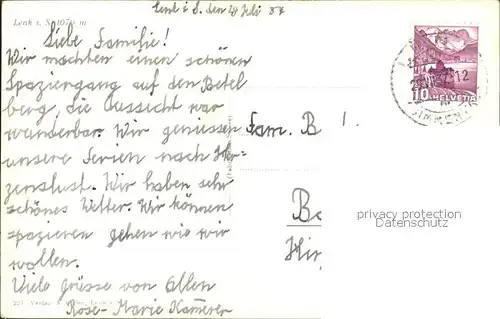 Lenk i. S. 1070 m
Lenk i. S. den Juli 37
Liebe Familie!
Wir machten einen schönen
Spaziergang auf den Betel
berg, die Aussicht war
wunderbar. Wir geniessen
unsere Ferien nach Her-
zenslust. Wir haben sehr
schönes Wetter. Wir können
spazieren gehen wie wir
wollen.
Viele Grüsse von Allen
Rose-Marie Kammerer
Fam. B !.
Be
Hir
10 HELVETIA
SIMMEN
privacy protection
Datenschutz